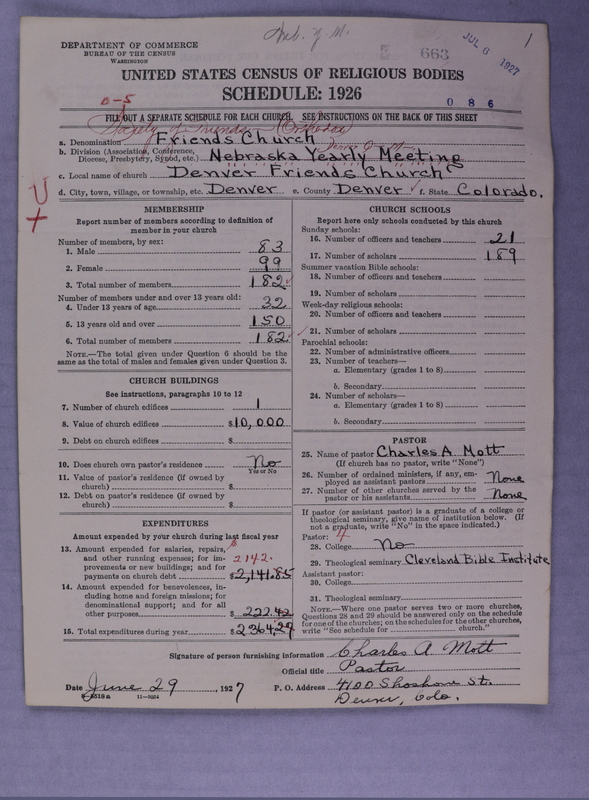 DEPARTMENT OF COMMERCE
BUREAU OF THE CENSUS
WASHINGTON
663
JUL 6 1927
1
UNITED STATES CENSUS OF RELIGIOUS BODIES
SCHEDULE: 1926
0-5
0 8 6
FILL OUT A SEPARATE SCHEDULE FOR EACH CHURCH. SEE INSTRUCTIONS ON THE BACK OF THIS SHEET
Society of Friends (Orthodox)
a. Denomination Friends Church
b. Division (Association, Conference, Diocese, Presbytery, Synod, etc.) Nebraska Yearly Meeting
c. Local name of church Denver Friends Church
d. City, town, village, or township, etc. Denver e. County Denver f. State Colorado.
MEMBERSHIP
Report number of members according to definition of
member in your church
Number of members, by sex:
1. Male 83
2. Female 99
3. Total number of members 182
Number of members under and over 13 years old:
4. Under 13 years of age 32
5. 13 years old and over 150
6. Total number of members 182
NOTE.—The total given under Question 6 should be the
same as the total of males and females given under Question 3.
CHURCH BUILDINGS
See instructions, paragraphs 10 to 12
7. Number of church edifices 1
8. Value of church edifices $10,000
9. Debt on church edifices $
10. Does church own pastor's residence No
Yes or No
11. Value of pastor's residence (if owned by
church) $
12. Debt on pastor's residence (if owned by
church) $
EXPENDITURES
Amount expended by your church during last fiscal year
13. Amount expended for salaries, repairs,
and other running expenses; for im-
provements or new buildings; and for
payments on church debt $2,141.85
2142.
14. Amount expended for benevolences, in-
cluding home and foreign missions; for
denominational support; and for all
other purposes 222.42
15. Total expenditures during year $2364.27
CHURCH SCHOOLS
Report here only schools conducted by this church
Sunday schools:
16. Number of officers and teachers 21
17. Number of scholars 189
Summer vacation Bible schools:
18. Number of officers and teachers
19. Number of scholars
Week-day religious schools:
20. Number of officers and teachers
21. Number of scholars
Parochial schools:
22. Number of administrative officers
23. Number of teachers—
a. Elementary (grades 1 to 8)
b. Secondary
24. Number of scholars—
a. Elementary (grades 1 to 8)
b. Secondary
PASTOR
25. Name of pastor Charles A Mott
(If church has no pastor, write "None")
26. Number of ordained ministers, if any, em-
ployed as assistant pastors None
27. Number of other churches served by the
pastor or his assistants None
If pastor (or assistant pastor) is a graduate of a college or
theological seminary, give name of institution below. (If
not a graduate, write "No" in the space indicated.)
Pastor: 4
28. College No
29. Theological seminary Cleveland Bible Institute
Assistant pastor:
30. College
31. Theological seminary
NOTE.—Where one pastor serves two or more churches,
Questions 28 and 29 should be answered only on the schedule
for one of the churches; on the schedules for the other churches,
write "See schedule for church."
Signature of person furnishing information Charles A Mott
Official title Pastor
Date June 29, 1927 P. O. Address 4100 Shoshone St.
Denver, Colo.
11—9024